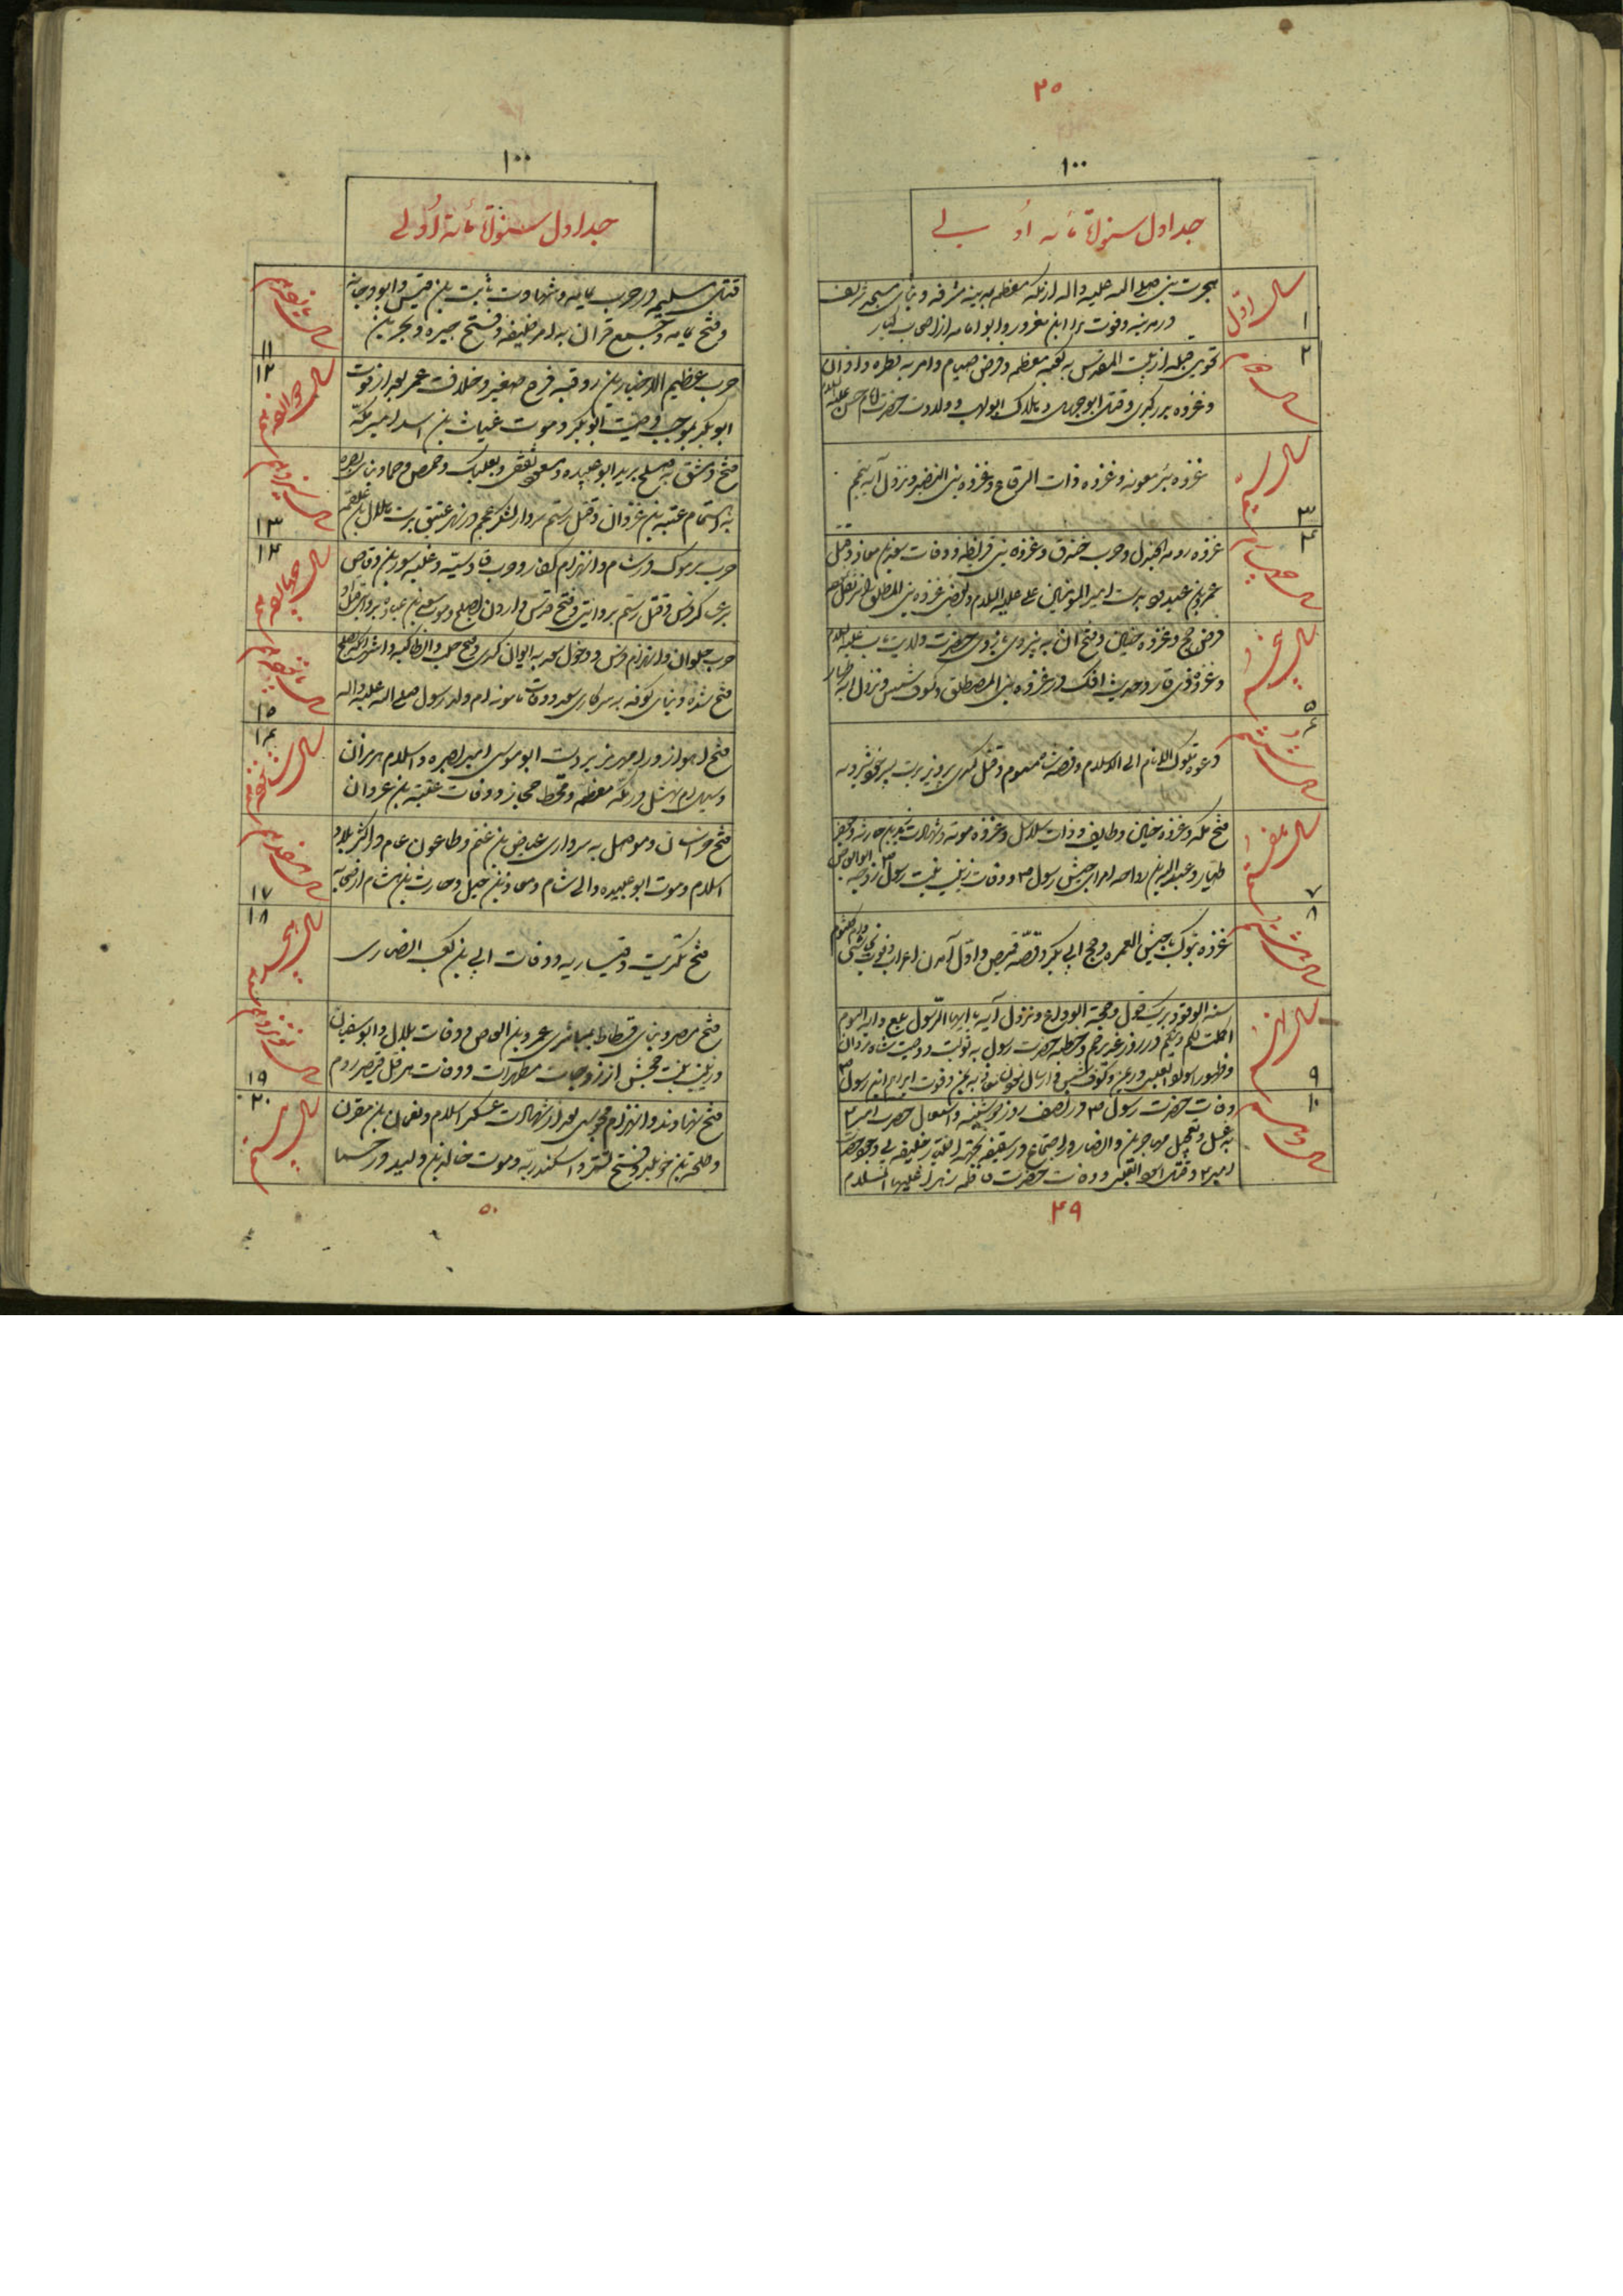 ۲۵
۱۰۰
جداول سنوات مائه اولی
سال اول
۱
هجرت نبی صلی الله علیه واله از مکه معظمه به مدینه مشرفه و بنای مسجد شریف
در مدینه و فوت برا ابن معرور و ابو امامه از اصحاب کبار
سال دوم
۲
تحویل قبله از بیت المقدس به کعبه معظمه و فرض صیام و امر به فطره و اذان
و غزوه بدر کبری و قتل ابوجهل و هلاک ابولهب و ولادت حضرت امام حسن علیه السلام
سال سیم
۳
غزوه بئر معونه و غزوه ذات الرقاع و غزوه بنی النضیر و نزول آیه تیمم
سال چهارم
۴
غزوه دومة الجندل و حرب خندق و غزوه بنی قریظه و وفات سعد بن معاذ و قتل
عمرو بن عبدود بدست امیر المومنین علی علیه السلام و غزوه بنی المصطلق
سال پنجم
۵
فرض حج و غزوه و فتح آن به نیروی بازوی حضرت ولایت مآب علیه السلام
و غزوه ذی قار و حدیث افک در غزوه بنی المصطلق و کسوف شمس و نزول آیه ظهار
سال ششم
۶
دعوه ملوک الانام الی الاسلام و قصه مسموم و قتل کسری پرویز بدست پسر خود شیرویه
سال هفتم
۷
فتح مکه و غزوه حنین و طایف و ذات سلاسل و غزوه موته و شهادت زید بن حارثه و جعفر
طیار و عبدالله بن رواحه امرای جیش رسول ص و وفات زینب بنت رسول ص زوجه ابوالعاص
سال هشتم
۸
غزوه تبوک با جیش العسره و حج ابی بکر و قصه و اول آمدن اعراب و فوت نجاشی و ام کلثوم
سال نهم
۹
سنة الوفود و حجة الوداع و نزول آیه یا ایها الرسول بلغ و آیه الیوم
اکملت لکم دینکم در روز غدیر خم و خطبه حضرت رسول به تولیت و وصیت شاه مردان
و ظهور اسود و کسوف شمس و فوت ابراهیم ابن رسول ص
سال دهم
۱۰
وفات حضرت رسول ص در روز دوشنبه و اشتغال حضرت امیر ع
به غسل و تعجیل مهاجرین و انصار و اجتماع در سقیفه بجهة تعیین خلیفه
امیر ع و وفات حضرت فاطمه زهرا علیها السلام
۴۹
۱۰۰
جداول سنوات مائه اولی
سال یازدهم
۱۱
قتل مسیلمه در حرب یمامه و شهادت ثابت بن قیس و ابو دجانه
و فتح یمامه و جمع قرآن به امر خلیفه و فتح حیره و بحرین
سال دوازدهم
۱۲
حرب عظیم و خلافت عمر بعد از فوت
ابوبکر بموجب وصیت ابوبکر و موت عتاب بن اسید امیر مکه
سال سیزدهم
۱۳
فتح دمشق به صلح بر ید ابو عبیده و بعلبک و حمص و حما و بنای بصره
به اهتمام عتبه بن غزوان و قتل رستم سردار لشکر عجم در نهر عتیق بدست هلال بن علقمه
سال چهاردهم
۱۴
حرب یرموک در شام و انهزام کفار و حرب قادسیه و غلبه سعد بن وقاص
بر عساکر فرس و قتل رستم بروایتی و فتح قدس و اردن بصلح و موت سعد بن عباده بروایتی
سال پانزدهم
۱۵
حرب حلوان و انهزام فرس و دخول سعد به ایوان کسری و فتح حلب و انطاکیه
فتح شده و بنای کوفه به سرکاری سعد و وفات ماریه ام ولد رسول صلی الله علیه واله
سال شانزدهم
۱۶
فتح اهواز و رامهرمز بر دست ابوموسی امیر بصره و اسلام هرمزان
و سیل در مکه معظمه و قحط حجاز و وفات عتبه بن غزوان
سال هفدهم
۱۷
فتح خراسان و موصل به سرداری عیاض بن غنم و طاعون عام در اکثر بلاد
اسلام و موت ابو عبیده والی شام و معاذ بن جبل و حارث بن هشام از صحابه
سال هیجدهم
۱۸
فتح تکریت و قیساریه و وفات ابی بن کعب انصاری
سال نوزدهم
۱۹
فتح مصر و بنای فسطاط بمباشری عمرو بن العاص و وفات بلال و ابوسفیان
و زینب بنت جحش از زوجات مطهرات و وفات هرقل قیصر روم
سال بیستم
۲۰
فتح نهاوند و انهزام مجوس بعد از شهادت عسکر اسلام و نعمان بن مقرن
و طلحه بن خویلد و فتح تستر و اسکندریه و موت خالد بن ولید در حمص
۵۰